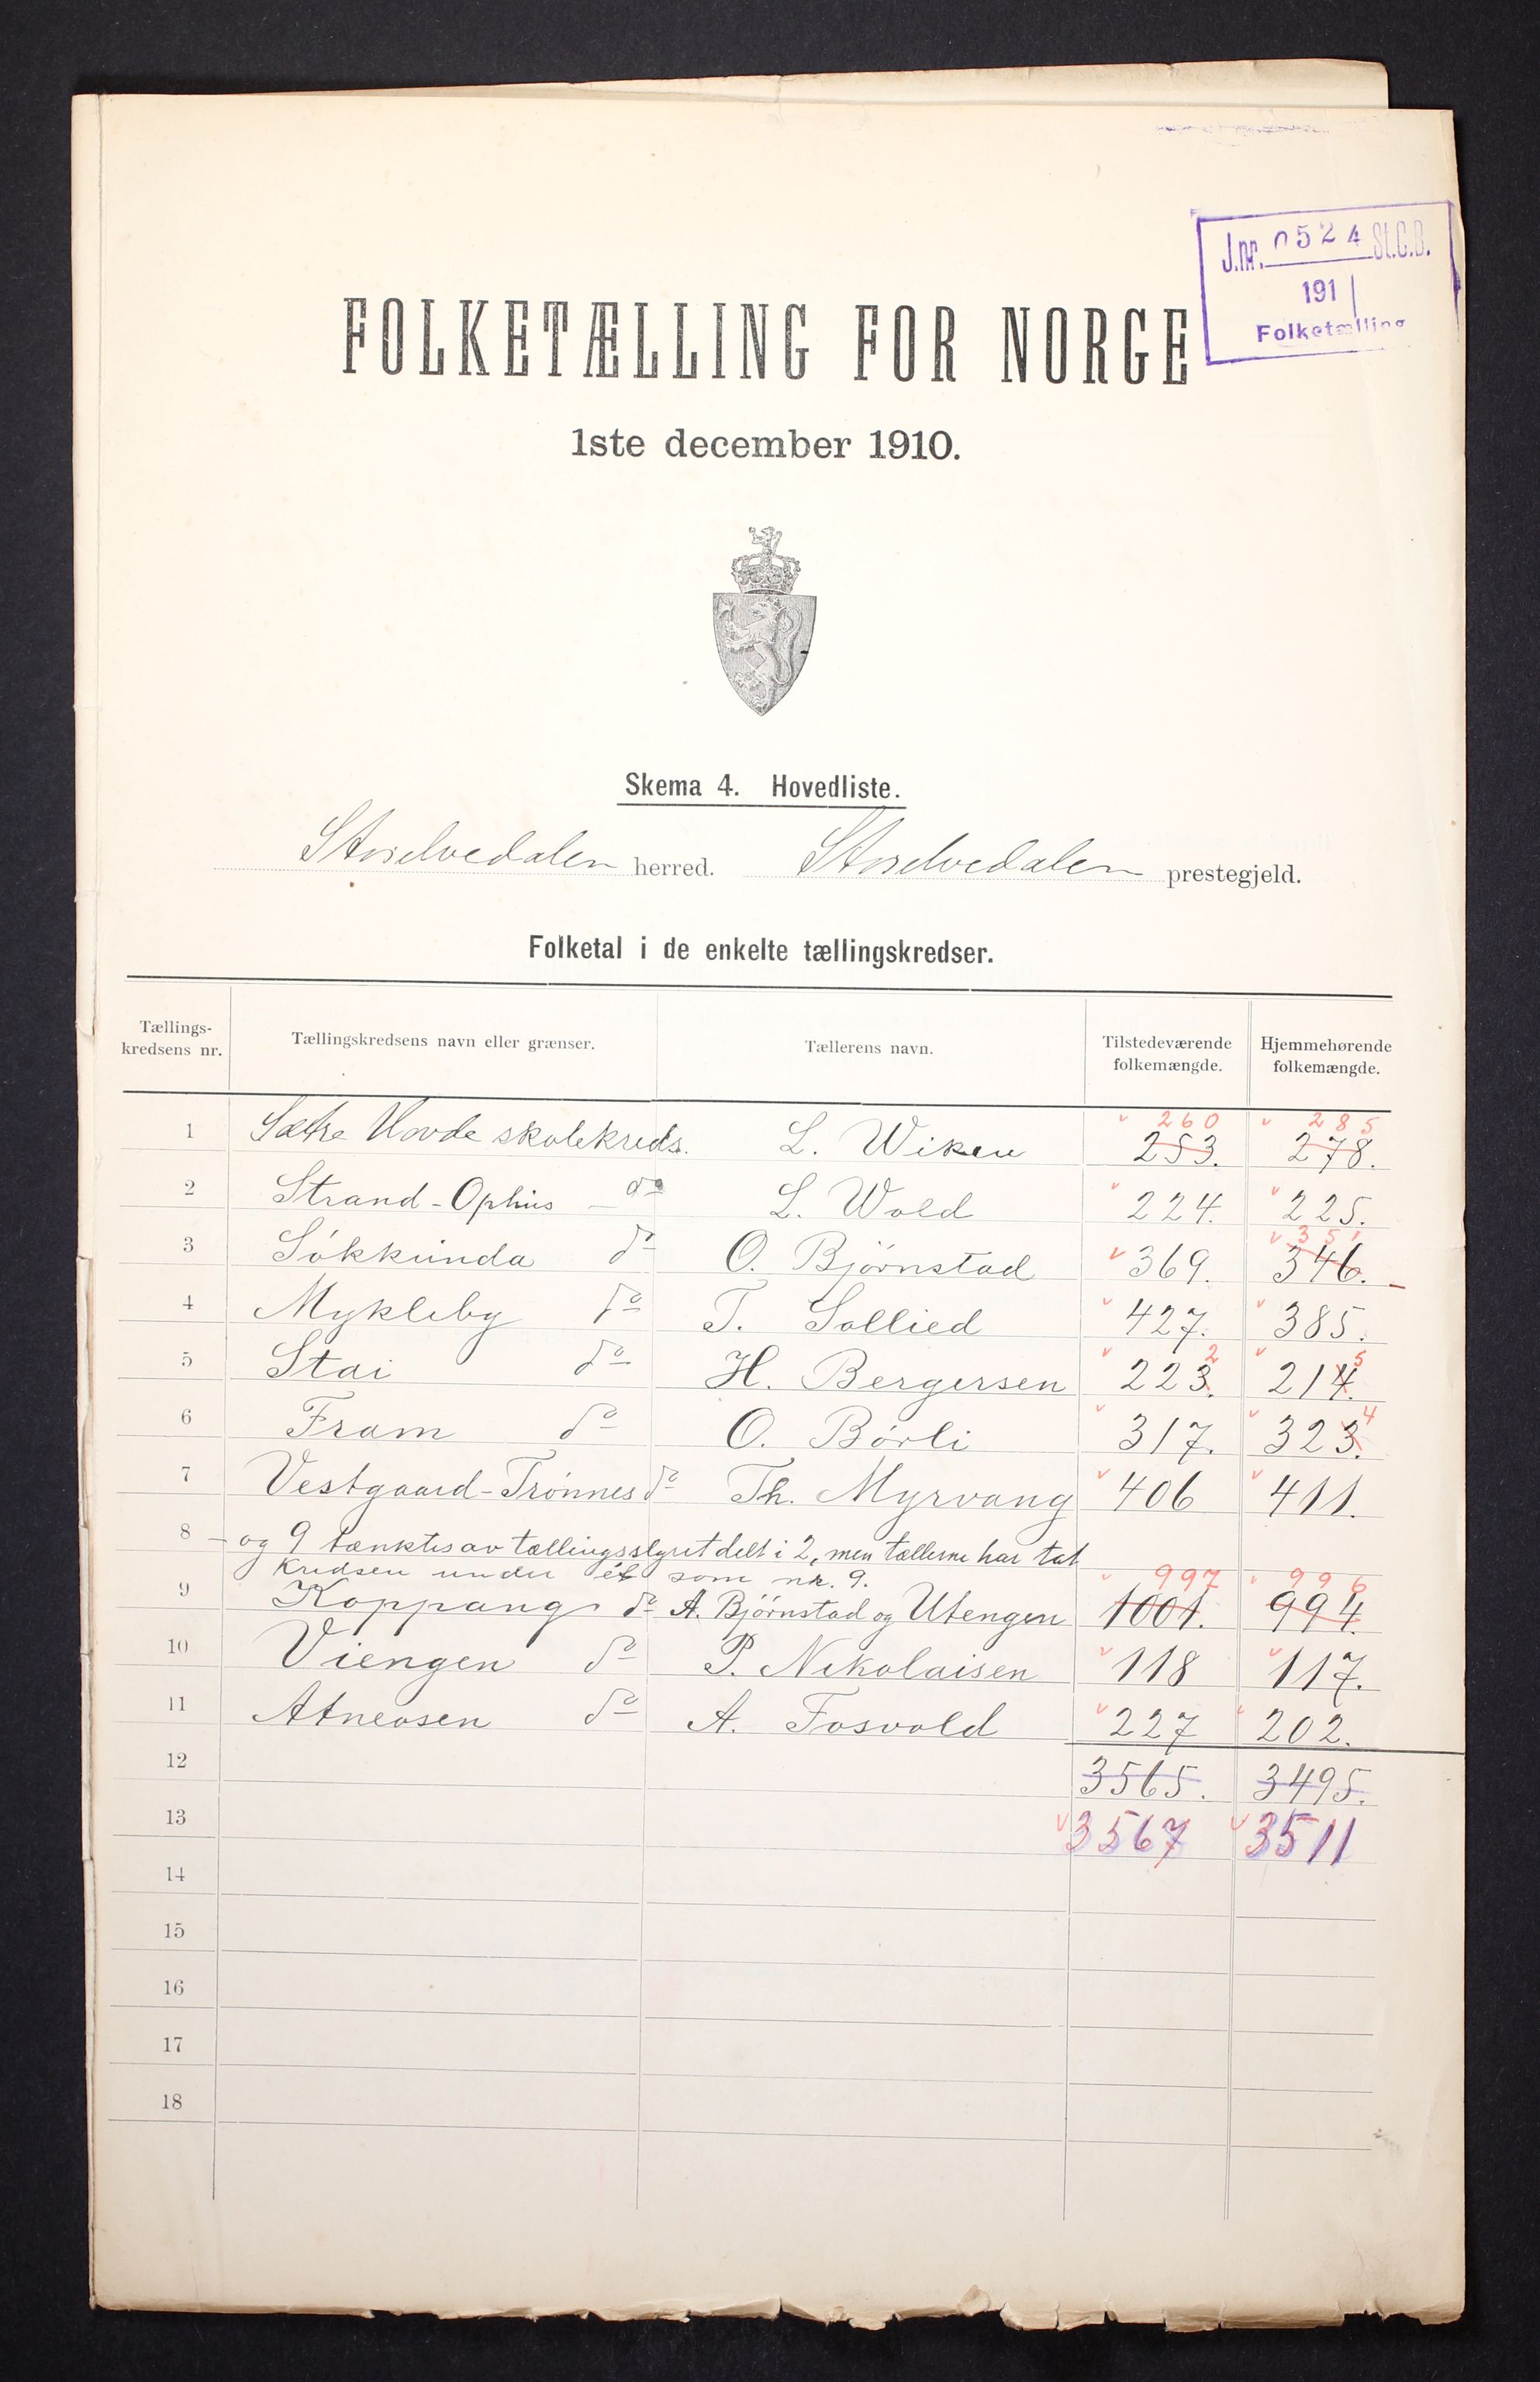 J.nr. 0524 St.C.B.
191
Folketælling
FOLKETÆLLING FOR NORGE
1ste december 1910.
Skema 4. Hovedliste.
Storelvedalen herred. Storelvedalen prestegjeld.
Folketal i de enkelte tællingskredser.
Tællings-kredsens nr. Tællingskredsens navn eller grænser. Tællerens navn. Tilstedeværende folkemængde. Hjemmehørende folkemængde.
260 285
1 Sætre Hovde skolekreds. L. Wiken 253. 278.
2 Strand-Ophus — do L. Wold 224. 225.
351
3 Søkkunda do O. Bjørnstad 369. 346.
4 Mykleby do T. Sollied 427. 385.
2 5
5 Stai do H. Bergersen 223. 214.
4
6 Fram do O. Børli 317. 323.
7 Vestgaard-Trønnes do Th. Myrvang 406 411.
8 - og 9 tænktes av tællingsstyret delt i 2, men tællerne har tat
kredsen under ét som nr. 9.
997 996
9 Koppang do A. Bjørnstad og Utengen 1001. 994.
10 Viengen do P. Nikolaisen 118 117.
11 Atneosen do A. Fosvold 227 202.
12 3565. 3495.
13 3567 3511
14
15
16
17
18